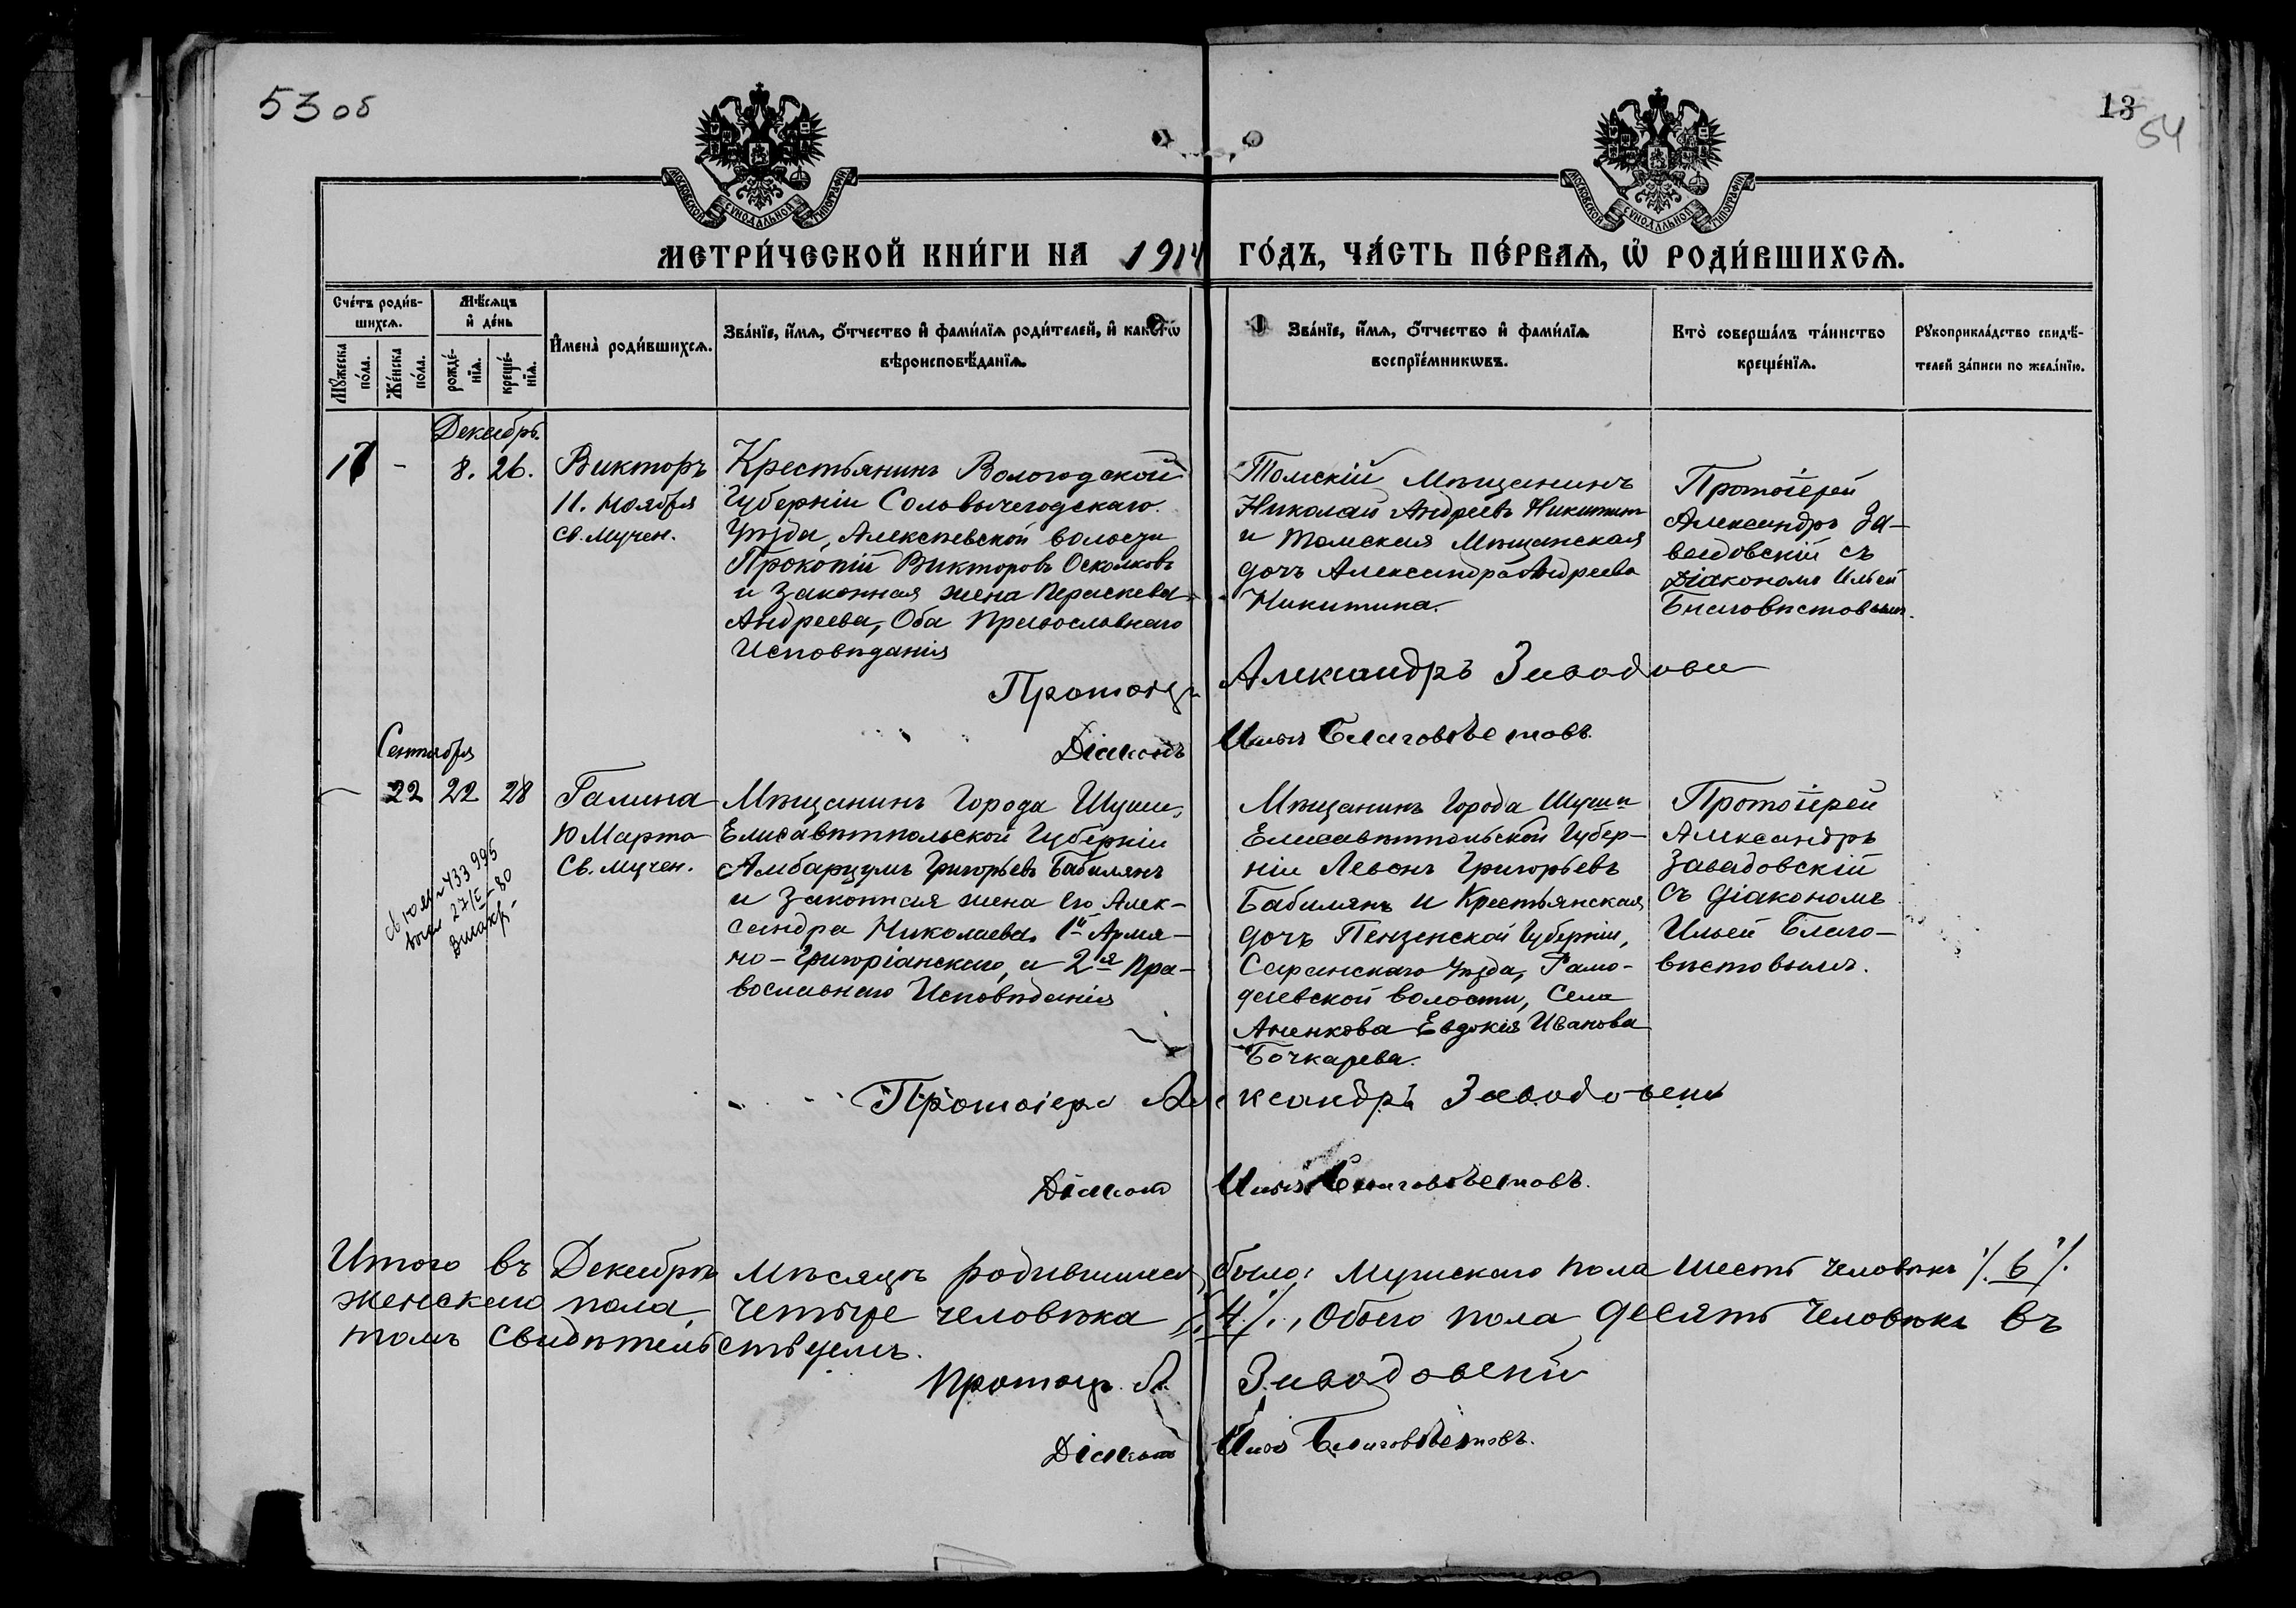 53 об
13
54
МОСКОВСКОЙ СѴНОДАЛЬНОЙ ТИПОГРАФІИ
МОСКОВСКОЙ СѴНОДАЛЬНОЙ ТИПОГРАФІИ
МЕТРИ́ЧЕСКОЙ КНИ́ГИ НА 1914 ГО́ДЪ, ЧА́СТЬ ПЕ́РВАѦ, Ѡ҆ РОДИ́ВШИХСѦ.
Сче́тъ роди́в-
шихсѧ.
Мꙋ́жеска по́ла.
Же́нска по́ла.
Мѣ́сѧцъ
и҆ де́нь
рожде́-
нїѧ.
креще́-
нїѧ.
И҆мена̀ роди́вшихсѧ.
Зва́нїе, и҆́мѧ, ѻ҆́тчество и҆ фами́лїѧ роди́телей, и҆ какѡ́гѡ
вѣроисповѣ́данїѧ.
Зва́нїе, и҆́мѧ, ѻ҆́тчество и҆ фами́лїѧ
воспрїе́мникѡвъ.
Кто̀ соверша́лъ та́инство
креще́нїѧ.
Рꙋкоприкла́дство свидѣ́-
телей за́писи по жела́нїю.
Декабрь.
17 - 8. 26.
Викторъ
11. Ноября
св. мучен.
Крестьянинъ Вологодской
Губерніи Сольвычегодскаго
Уѣзда, Алексѣевской волости
Прокопій Викторовъ Осколковъ
и Законная жена Параскева
Андреева, Оба Православнаго
Исповѣданія
Томскій Мѣщанинъ
Николай Андреевъ Никитинъ
и Томская Мѣщанская
дочь Александра Андреева
Никитина.
Протоіерей
Александръ За-
вадовскій съ
Діакономъ Ильей
Благовѣстовымъ.
Протоіер Александръ Завадовск
Діаконъ Илья Благовѣстовъ.
Сентября
- 22 22 28
Галина
10 Марта
Св. мучен.
Мѣщанинъ Города Шуши,
Елисаветпольской Губерніи
Амбарцумъ Григорьевъ Бабилянъ
и Законная жена Его Алек-
сандра Николаева, 1й Армя-
но-Григоріанскаго, а 2я Пра-
вославнаго Исповѣданія
Мѣщанинъ Города Шуши
Елисаветпольской Губер-
ніи Левонъ Григорьевъ
Бабилянъ и Крестьянская
дочь Пензенской Губерніи,
Саранскаго Уѣзда, Рамо-
даевской волости, Села
Аненкова Евдокія Иванова
Бочкарева.
Протоіерей
Александръ
Завадовскій
съ Діакономъ
Ильей Благо-
вѣстовымъ.
433995
Протоіерей Александръ Завадовскі
Діаконъ Илья Благовѣстовъ.
Итого въ Декабрѣ Мѣсяцѣ родившихся было: Мужскаго пола шесть человѣкъ /.6/.
женскаго пола, четыре человѣка /.4/., Обоего пола десять человѣкъ въ
томъ свидѣтельствуемъ.
Протоіер. А. Завадовскій
Діаконъ Илья Благовѣстовъ.